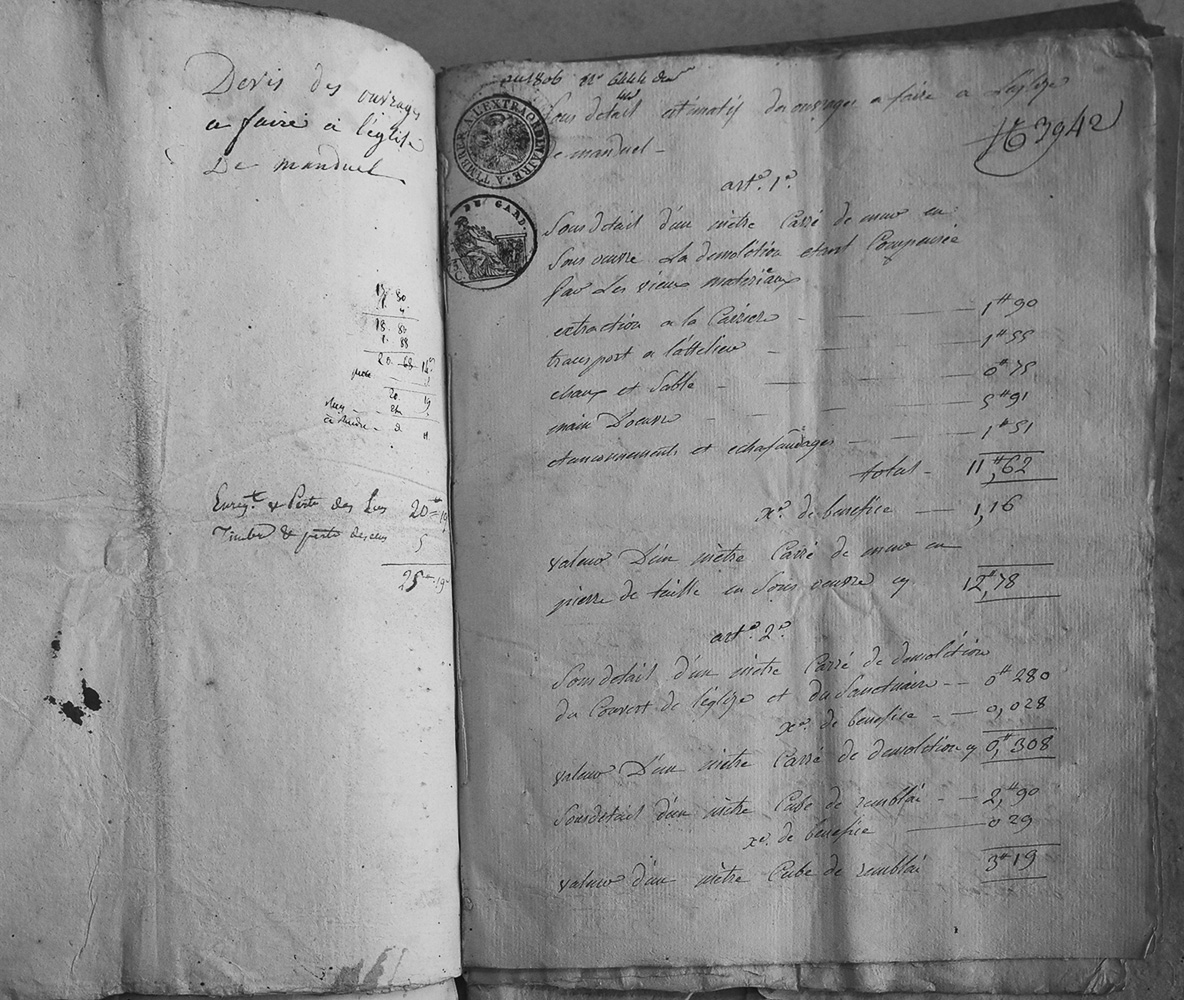 Devis des ouvrages
a faire a l'églize
De manduel
18. 80
1. 88
20. 68
Enreg.t & Perte des Sus 20# 19
Timbre & perte des sus 5
25# 19
an 1806 n.o 6444
Sous detail estimatif des ouvrages a faire a L'eglize
de manduel
# 3942
A TIMBRER A L'EXTRAORDINAIRE
DU GARD
art.e 1.e
Sous detail d'un mètre Carré de mur en
sous œuvre La demolition etant Compensée
par Les vieux materiaux
extraction a la Carriere - 1# 90
transport a l'attelier - 1# 55
chaux et Sable - 0# 75
main D'œuvre - 5# 91
etanconnements et echafaudages - 1# 51
total - 11#,62
xe. de benefice - 1,16
valeur D'un mètre Carré de mur en
pierre de taille en Sous œuvre cy 12#,78
art.e 2.e
Sous detail d'un mètre Carré de demolition
du Couvert de l'églize et du Sanctuaire - 0# 280
xe. de benefice - 0,028
valeur D'un mètre Carré de demolition cy 0,# 308
Sous detail d'un mètre Cube de remblai - 2,# 90
xe. de benefice - 0 29
valeur d'un mètre Cube de remblai 3# 19